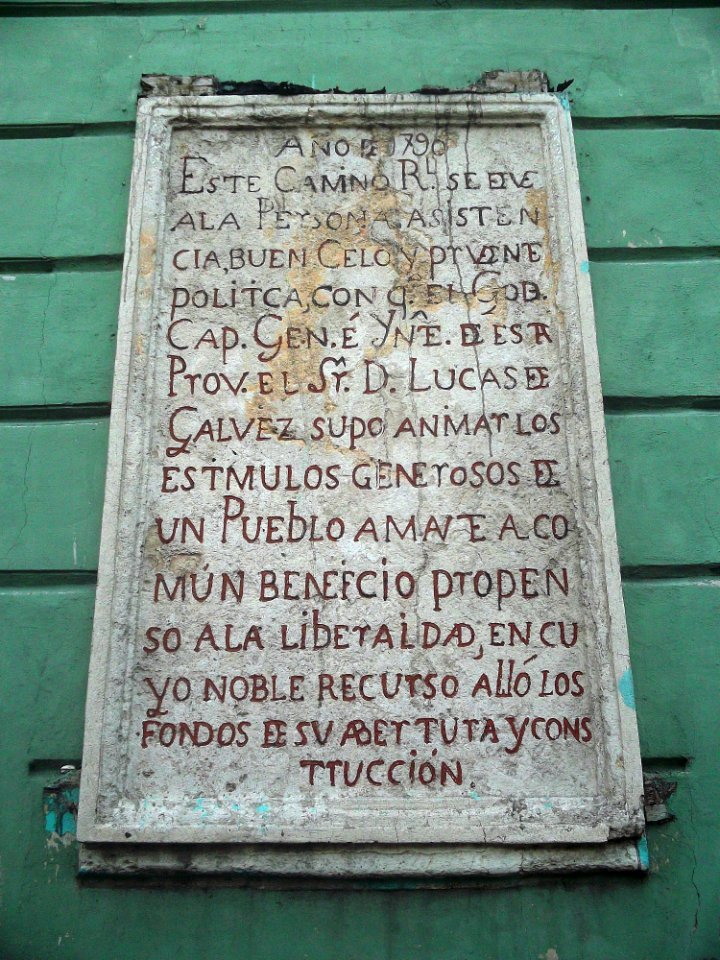 AÑO DE 1790
ESTE CAMINO Rˡ. SE DEVE
A LA PERSONA, ASISTEN
CIA, BUEN CELO Y PRVDENTE
POLITICA, CON q. EL GOB.
CAP. GEN. É YNTE. DE ESTA
PROV. EL Sr. D. LUCAS DE
GALVEZ SUPO ANIMAR LOS
ESTIMULOS GENEROSOS DE
UN PUEBLO AMANTE A CO
MÚN BENEFICIO PROPEN
SO A LA LIBERALDAD, EN CU
YO NOBLE RECURSO ALLÓ LOS
FONDOS DE SU ABERTURA Y CONS
TRUCCIÓN.